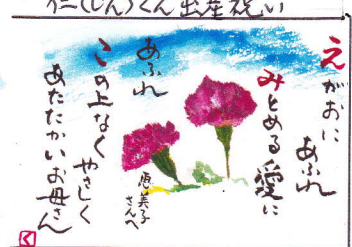 仁(じん)くん出産祝い
えがおに あふれ
みとめる愛に
あふれ
この上なくやさしく
あたたかいお母さん
恵美子
さんへ
く